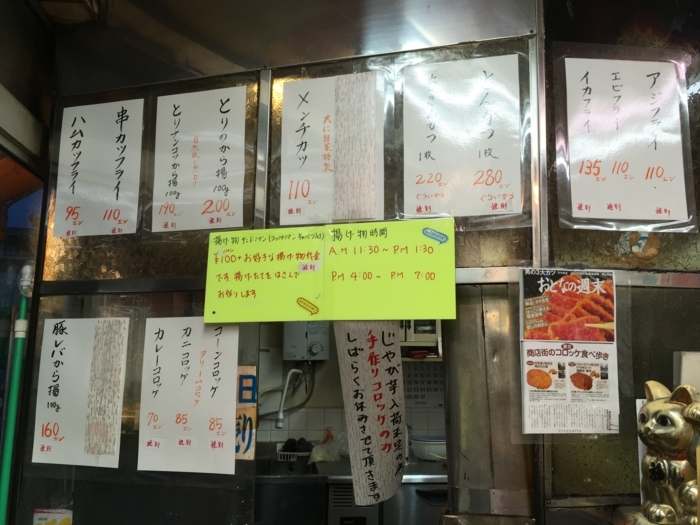 アジフライ
110エン
エビフライ
110エン
イカフライ
135エン
税別
とんかつ
1枚
280エン
ぐらいから
税別
1枚
220エン
ぐらいから
税別
メンチカツ
110エン
税別
とりのから揚
100g
200エン
税別
とりナンコツから揚
100g
190エン
税別
串カツフライ
110エン
税別
ハムカツフライ
95エン
税別
揚げ物サンドパン(コッペパン、キャベツ入り)
¥100+お好きな揚げ物代金
税別
です。揚げたてをはさんで
お作りします
揚げ物時間
A.M 11:30~PM 1:30
PM 4:00~ PM 7:00
コーンコロッケ
85エン
税別
カニクリームコロッケ
85エン
税別
カレーコロッケ
70エン
税別
豚レバから揚
100g
160エン
税別
じゃが芋入荷
手作りコロッケのみ
しばらくお休みさせて頂きます
男の3大カツ
おとなの週末
商店街のコロッケ食べ歩き